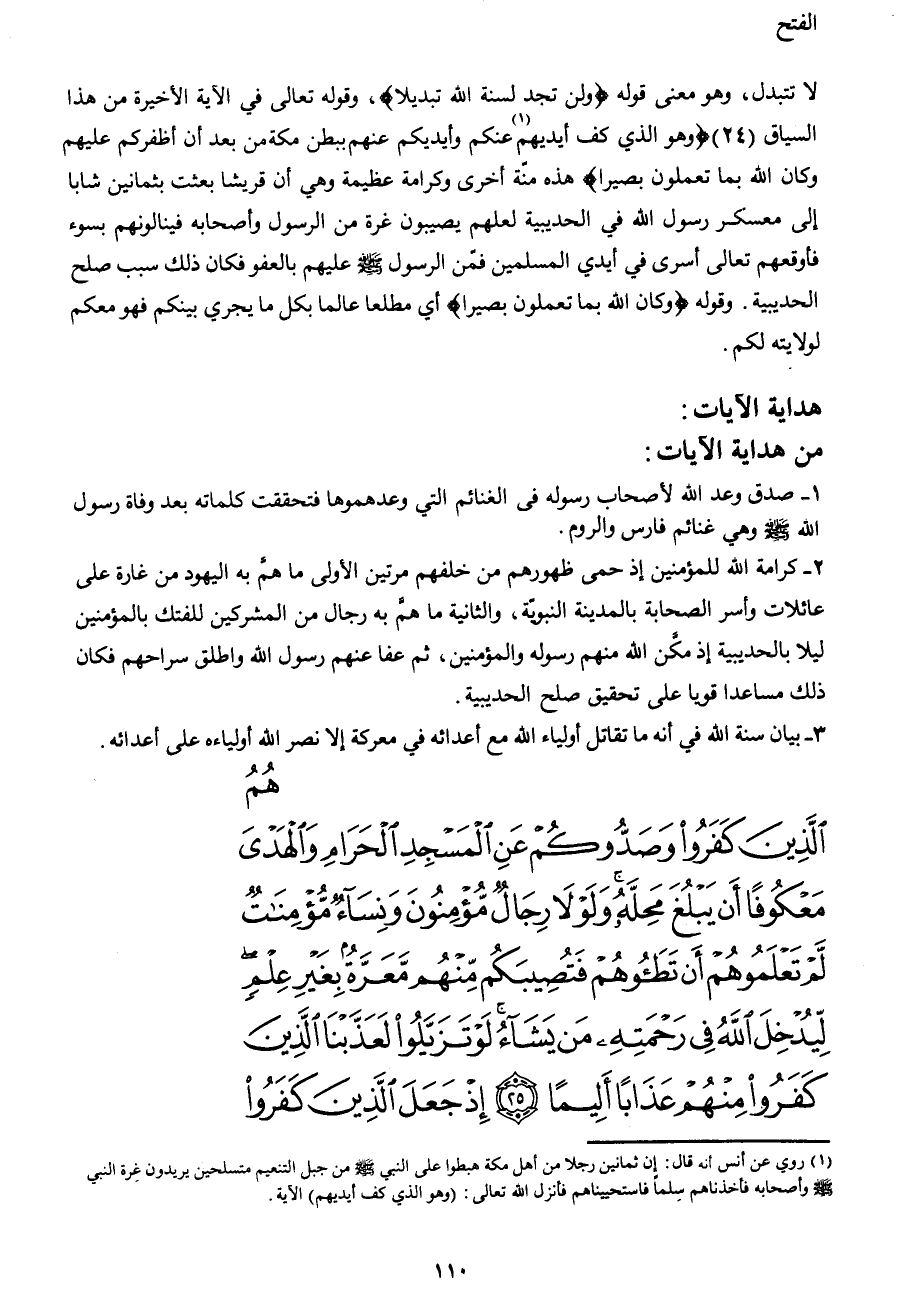 الفتح
لا تتبدل، وهو معنى قوله ﴿ولن تجد لسنة الله تبديلا﴾، وقوله تعالى في الآية الأخيرة من هذا
السياق (٢٤) ﴿وهو الذي كف أيديهم(١) عنكم وأيديكم عنهم ببطن مكة من بعد أن أظفركم عليهم
وكان الله بما تعملون بصيرا﴾ هذه منّة أخرى وكرامة عظيمة وهي أن قريشا بعثت بثمانين شابا
إلى معسكر رسول الله في الحديبية لعلهم يصيبون غرة من الرسول وأصحابه فينالونهم بسوء
فأوقعهم تعالى أسرى في أيدي المسلمين فمّن الرسول ﷺ عليهم بالعفو فكان ذلك سبب صلح
الحديبية. وقوله ﴿وكان الله بما تعملون بصيرا﴾ أي مطلعا عالما بكل ما يجري بينكم فهو معكم
لولايته لكم.
هداية الآيات:
من هداية الآيات:
١ـ صدق وعد الله لأصحاب رسوله فى الغنائم التي وعدهموها فتحققت كلماته بعد وفاة رسول
الله ﷺ وهي غنائم فارس والروم.
٢ـ كرامة الله للمؤمنين إذ حمى ظهورهم من خلفهم مرتين الأولى ما همَّ به اليهود من غارة على
عائلات وأسر الصحابة بالمدينة النبويّة، والثانية ما همَّ به رجال من المشركين للفتك بالمؤمنين
ليلا بالحديبية إذ مكَّن الله منهم رسوله والمؤمنين، ثم عفا عنهم رسول الله واطلق سراحهم فكان
ذلك مساعدا قويا على تحقيق صلح الحديبية.
٣ـ بيان سنة الله في أنه ما تقاتل أولياء الله مع أعدائه في معركة إلا نصر الله أولياءه على أعدائه.
هُمُ
ٱلَّذِينَ كَفَرُوا۟ وَصَدُّوكُمْ عَنِ ٱلْمَسْجِدِ ٱلْحَرَامِ وَٱلْهَدْىَ
مَعْكُوفًا أَن يَبْلُغَ مَحِلَّهُۥ ۚ وَلَوْلَا رِجَالٌ مُّؤْمِنُونَ وَنِسَآءٌ مُّؤْمِنَـٰتٌ
لَّمْ تَعْلَمُوهُمْ أَن تَطَـُٔوهُمْ فَتُصِيبَكُم مِّنْهُم مَّعَرَّةٌۢ بِغَيْرِ عِلْمٍ ۖ
لِّيُدْخِلَ ٱللَّهُ فِى رَحْمَتِهِۦ مَن يَشَآءُ ۚ لَوْ تَزَيَّلُوا۟ لَعَذَّبْنَا ٱلَّذِينَ
كَفَرُوا۟ مِنْهُمْ عَذَابًا أَلِيمًا ۝٢٥ إِذْ جَعَلَ ٱلَّذِينَ كَفَرُوا۟
(١) روي عن أنس أنه قال: إن ثمانين رجلا من أهل مكة هبطوا على النبي ﷺ من جبل التنعيم متسلحين يريدون غِرة النبي
ﷺ وأصحابه فأخذناهم سِلماً فاستحييناهم فأنزل الله تعالى: (وهو الذي كف أيديهم) الآية.
١١٠